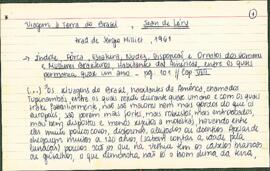 Viagem à Terra do Brasil, Jean de Léry
trad de Sérgio Milliet, 1941
Índole, Força, Estatura, Nudez, Disposição e Ornatos dos homens
e Mulheres Brasileiros, Habitantes da América, entre os quais
permaneci quase um ano - pag. 101 // Cap VIII.
(...) Os selvagens do Brasil, habitantes da América, chamados
Tupinambás, entre os quais residi durante quase um ano e com os quais
tratei familiarmente, não são maiores nem mais gordos do que os
europeus; são porém mais fortes, mais robustos, mais entroncados,
mais bem dispostos e menos sujeitos a moléstias, havendo entre
eles muito poucos coxos, disformes, aleijados ou doentios. Apesar de
chegarem muitos a 120 anos, (sabem contar a idade pela
lunação) poucos são os que na velhice têm os cabelos brancos
ou grisalhos, o que demonstra não só o bom clima da terra,